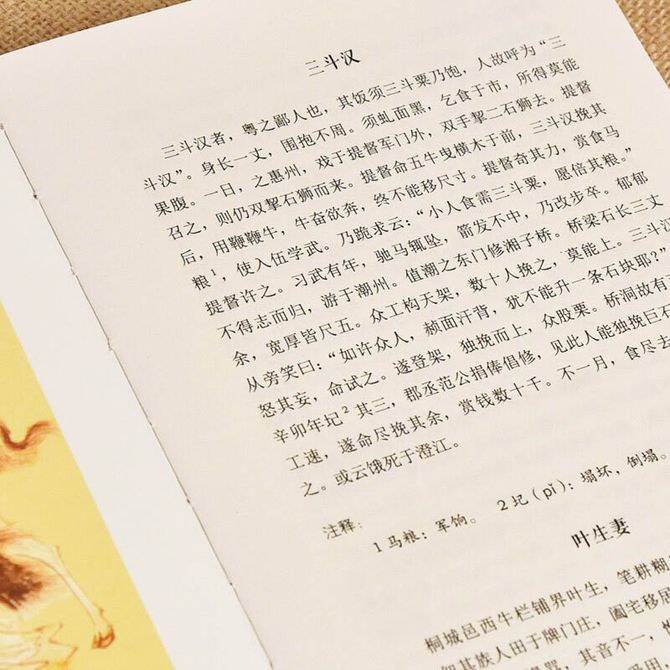 三斗汉
三斗汉者，粤之鄙人也，其饭须三斗粟乃饱，人故呼为“三
斗汉”。身长一丈，围抱不周。须虬面黑，乞食于市，所得莫能
果腹。一日，之惠州，戏于提督军门外，双手挈二石狮去。提督
召之，则仍双挈石狮而来。提督命五牛曳横木于前，三斗汉挽其
后，用鞭鞭牛，牛奋欲奔，终不能移尺寸。提督奇其力，赏食马
粮1，使入伍学武。乃跪求云：“小人食需三斗粟，愿倍其粮。”
提督许之。习武有年，驰马辄坠，箭发不中，乃改步卒。郁郁
不得志而归，游于潮州。值潮之东门修湘子桥。桥梁石长三丈
余，宽厚皆尺五。众工构天架，数十人挽之，莫能上。三斗汉
从旁笑曰：“如许众人，赪面汗背，犹不能升一条石块耶？”
怒其妄，命试之。遂登架，独挽而上，众股栗。桥洞故有
辛卯年圮2其三，郡丞范公捐俸倡修，见此人能独挽巨石
工速，遂命尽挽其余，赏钱数十千。不一月，食尽去
之。或云饿死于澄江。
注释：
1马粮：军饷。 2圮（pǐ）：塌坏，倒塌。
叶生妻
桐城邑西牛栏铺界叶生，笔耕糊
其族人田于牌门庄，阖宅移居
其音不一，